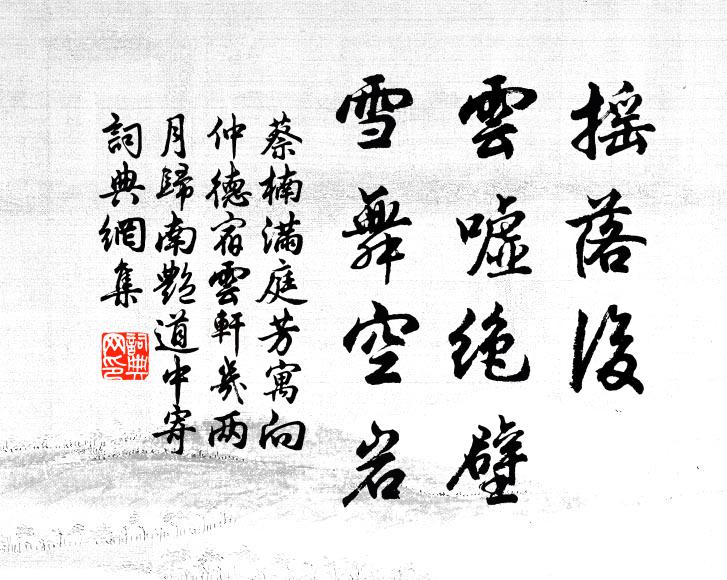 摇落後
雲嘘绝壁
雪舞空岩
蔡楠满庭芳寓向
仲德宿雲軒幾两
月歸南艷道中寄
詞典網集
詞典
网印